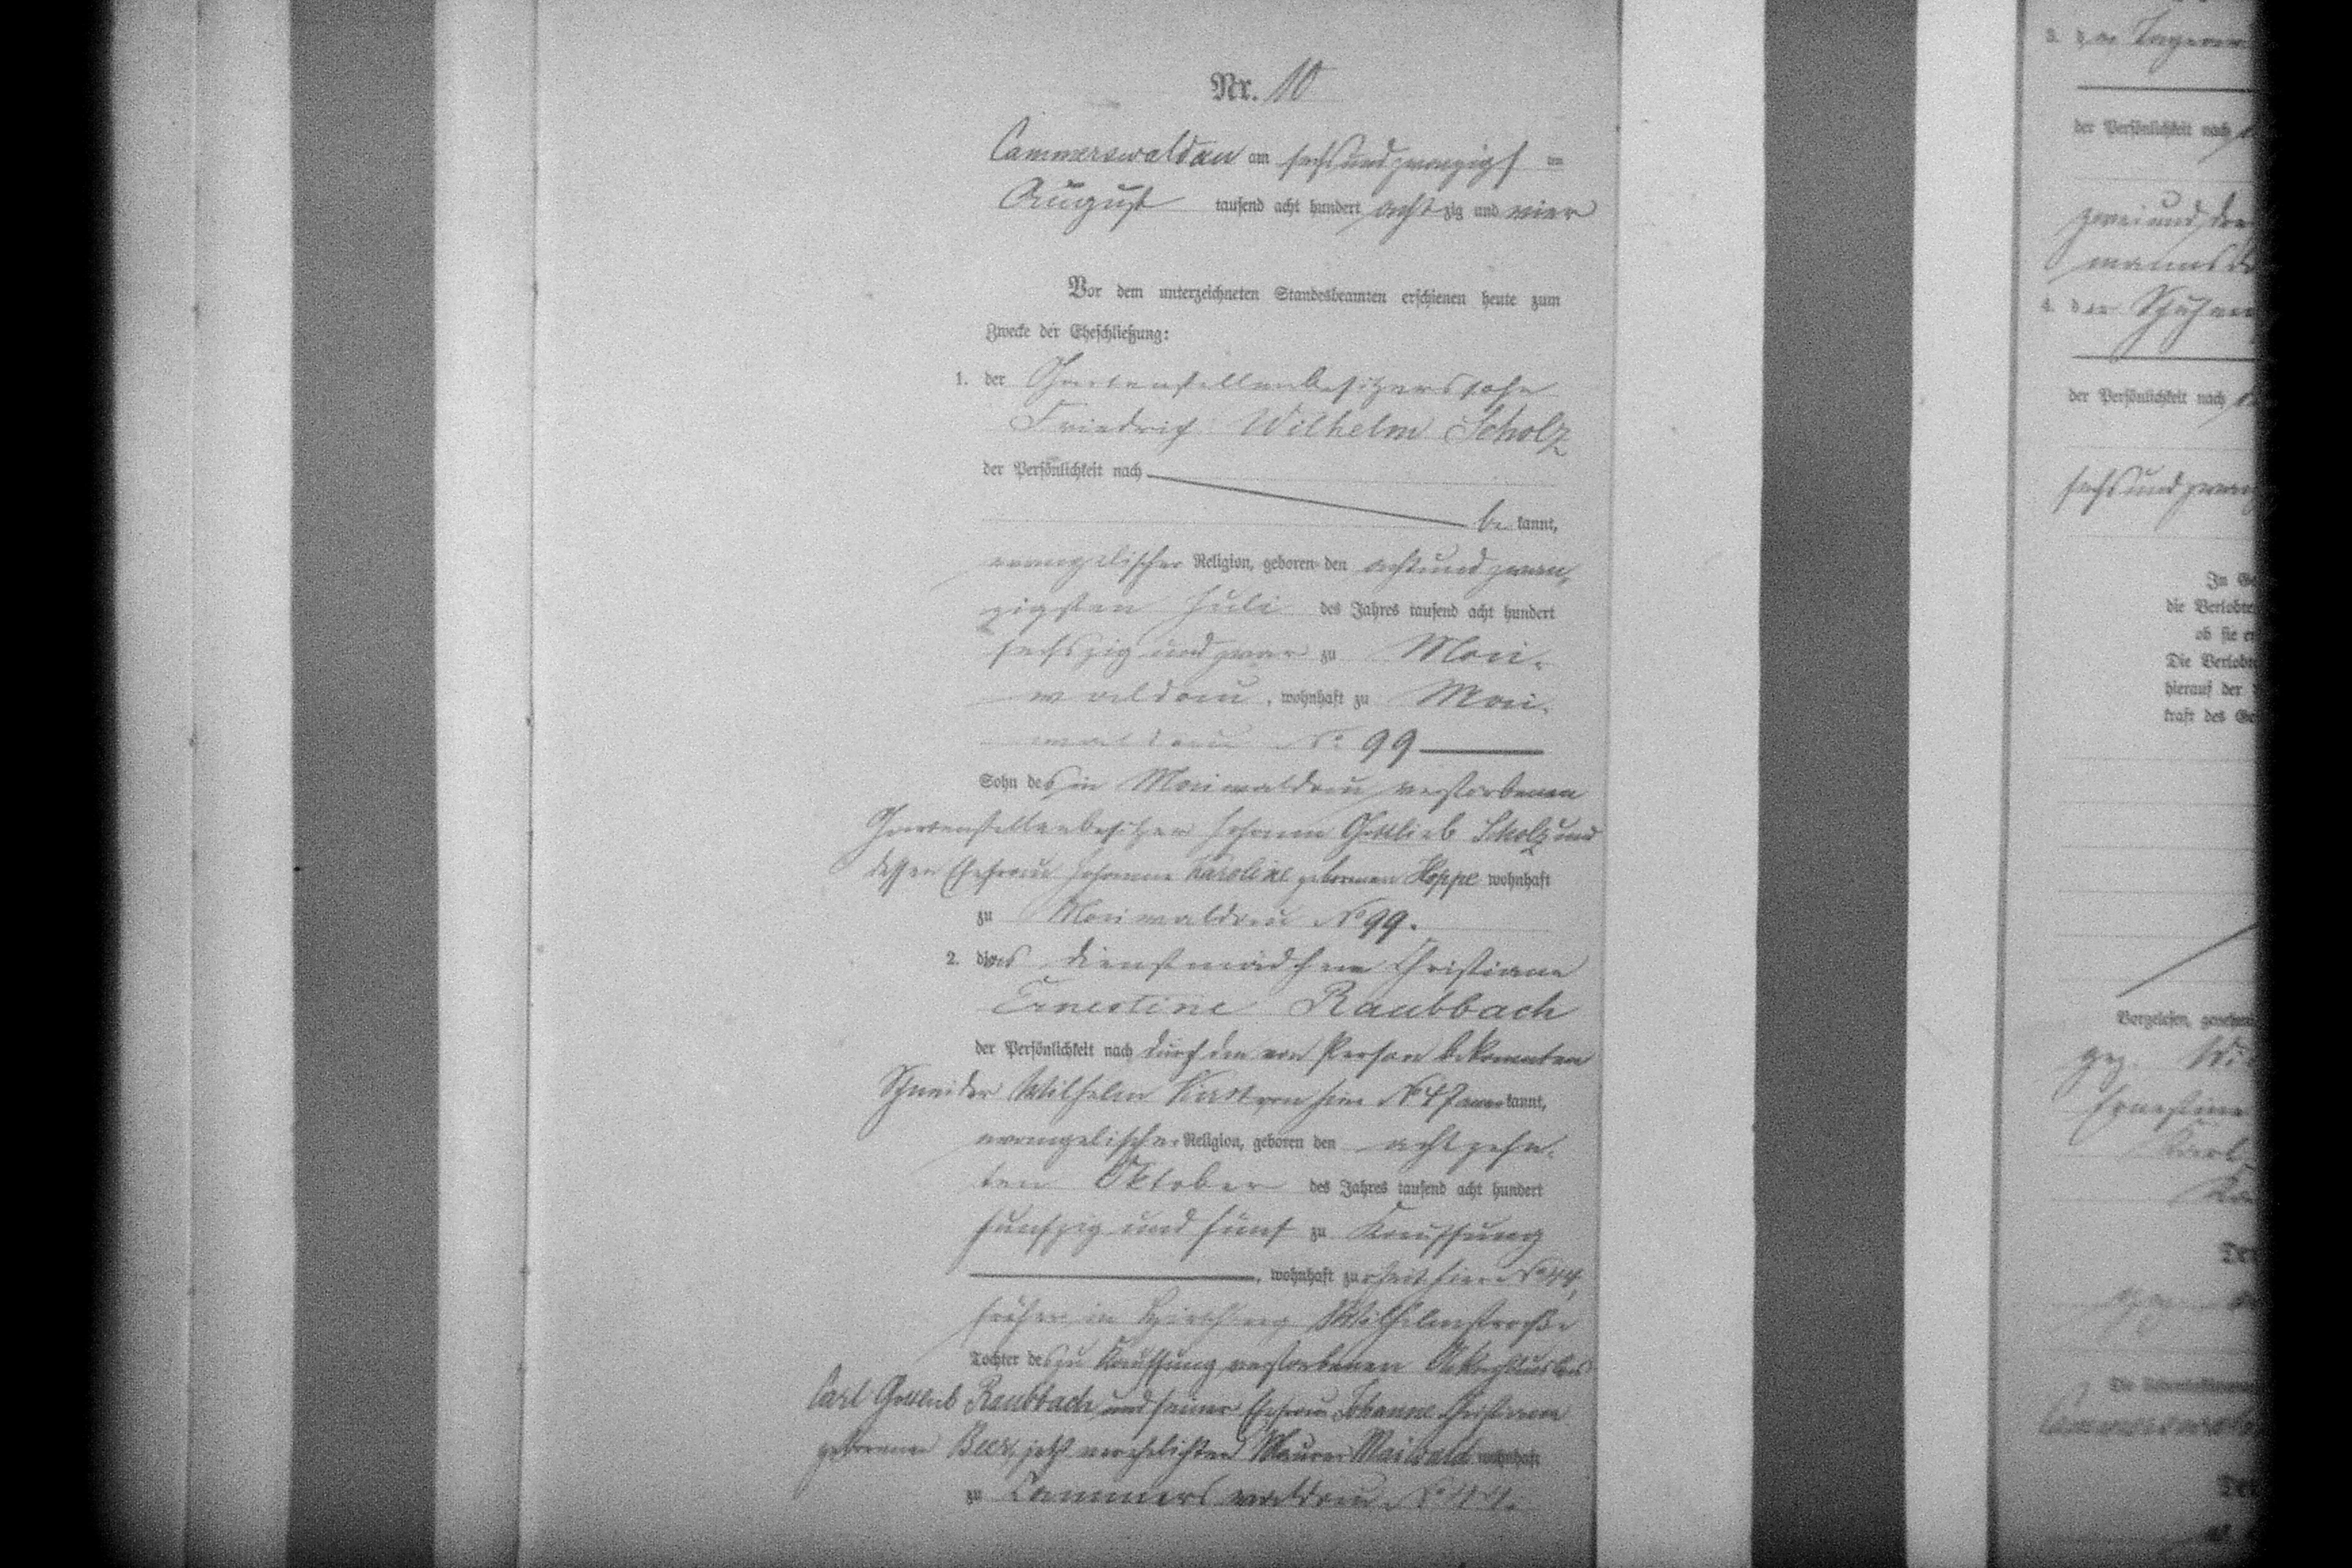 Nr. 10
Cammerswaldau am sechsundzwanzigsten
August tausend acht hundert achtzig und vier
Vor dem unterzeichneten Standesbeamten erschienen heute zum
Zwecke der Eheschließung:
1. der Gartenstellenbesitzerssohn
Friedrich Wilhelm Scholz
der Persönlichkeit nach
be kannt,
evangelischer Religion, geboren den achtundzwan-
zigsten Juli des Jahres tausend acht hundert
sechszig und zwar zu Mai-
waldau, wohnhaft zu Mai-
waldau No 99
Sohn des in Maiwaldau verstorbenen
Gartenstellenbesitzer Johann Gottlieb Scholz und
dessen Ehefrau Johanne Karoline geborenen Hoppe wohnhaft
zu Maiwaldau No 99.
2. das Dienstmädchen Christiane
Ernestine Raubbach
der Persönlichkeit nach durch den von Person bekannten
Schneider Wilhelm von hier No 47 anerkannt,
evangelischer Religion, geboren den achtzehn-
ten Oktober des Jahres tausend acht hundert
funfzig und fünf zu Kauffung
, wohnhaft zur Zeit hier No 44,
früher in Hirschberg Wilhelmstraße
Tochter des zu Kauffung verstorbenen
Carl Gottlieb Raubbach und seiner Ehefrau Johanne Christiane
geborenen Beer, jetzt verehelichten Maurer Maiwald wohnhaft
zu Cammerswaldau No 44.
3. der
der Persönlichkeit nach
zweiund
4. der
der Persönlichkeit nach
sechsund
In
die Verlobten
ob sie
Die Verlobten
hierauf der
kraft des
Vorgelesen,
gez.
Ernestine
Karl